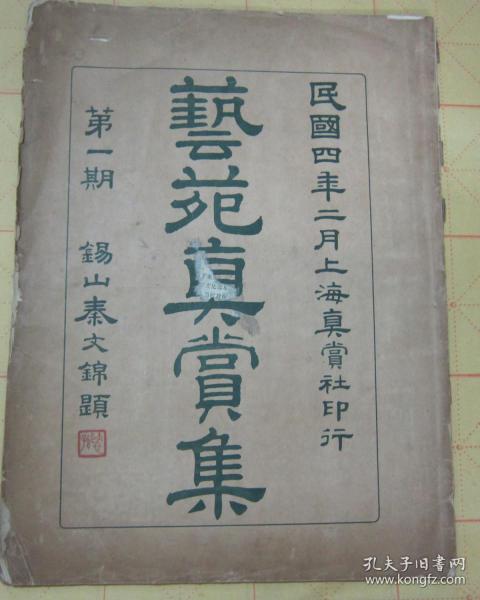 民國四年二月上海真賞社印行
藝苑真賞集
第一期 錫山秦文錦題
孔夫子旧书网
www.kongfz.com